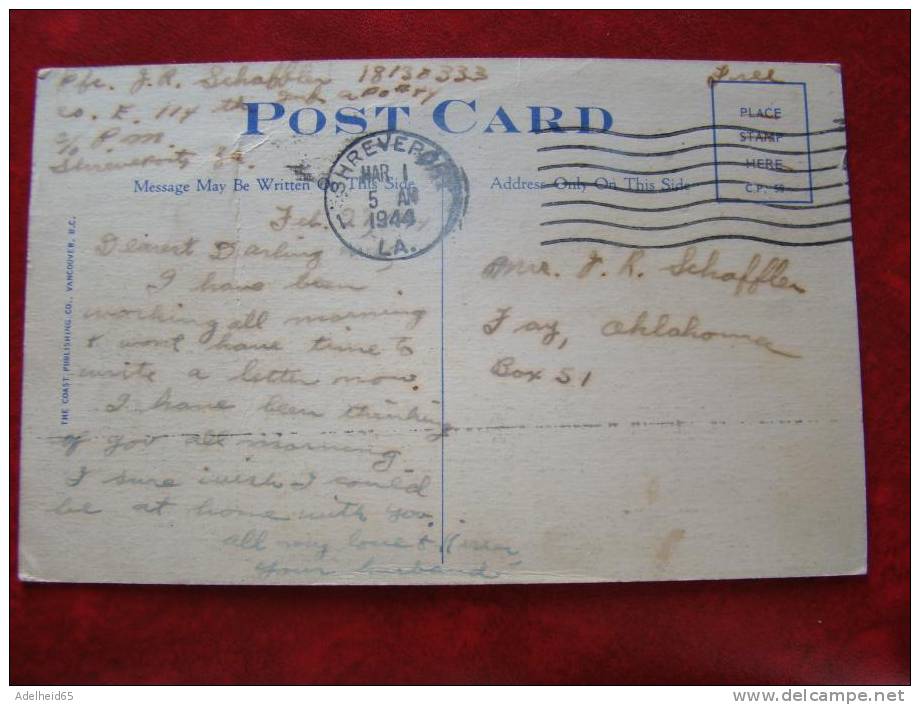 Pfc. J. R. Schaffler
Co. E. 114 th Inf. APO #44
℅ P.M
Shreveport, La.
Free
POST CARD
PLACE
STAMP
HERE
C.P. 50
Message May Be Written On This Side
Address Only On This Side
SHREVEPORT
MAR 1
5 AM
1944
LA.
1
THE COAST PUBLISHING CO., VANCOUVER, B.C.
Feb.
Dearest Darling
I have been
working all morning
& wont have time to
write a letter now.
I have been thinking
of you all morning
I sure wish I could
be at home with you.
all my love &
your husband
Mrs. J. R. Schaffler
Fay, Oklahoma
Box 51
Adelheid65
delcampe.net